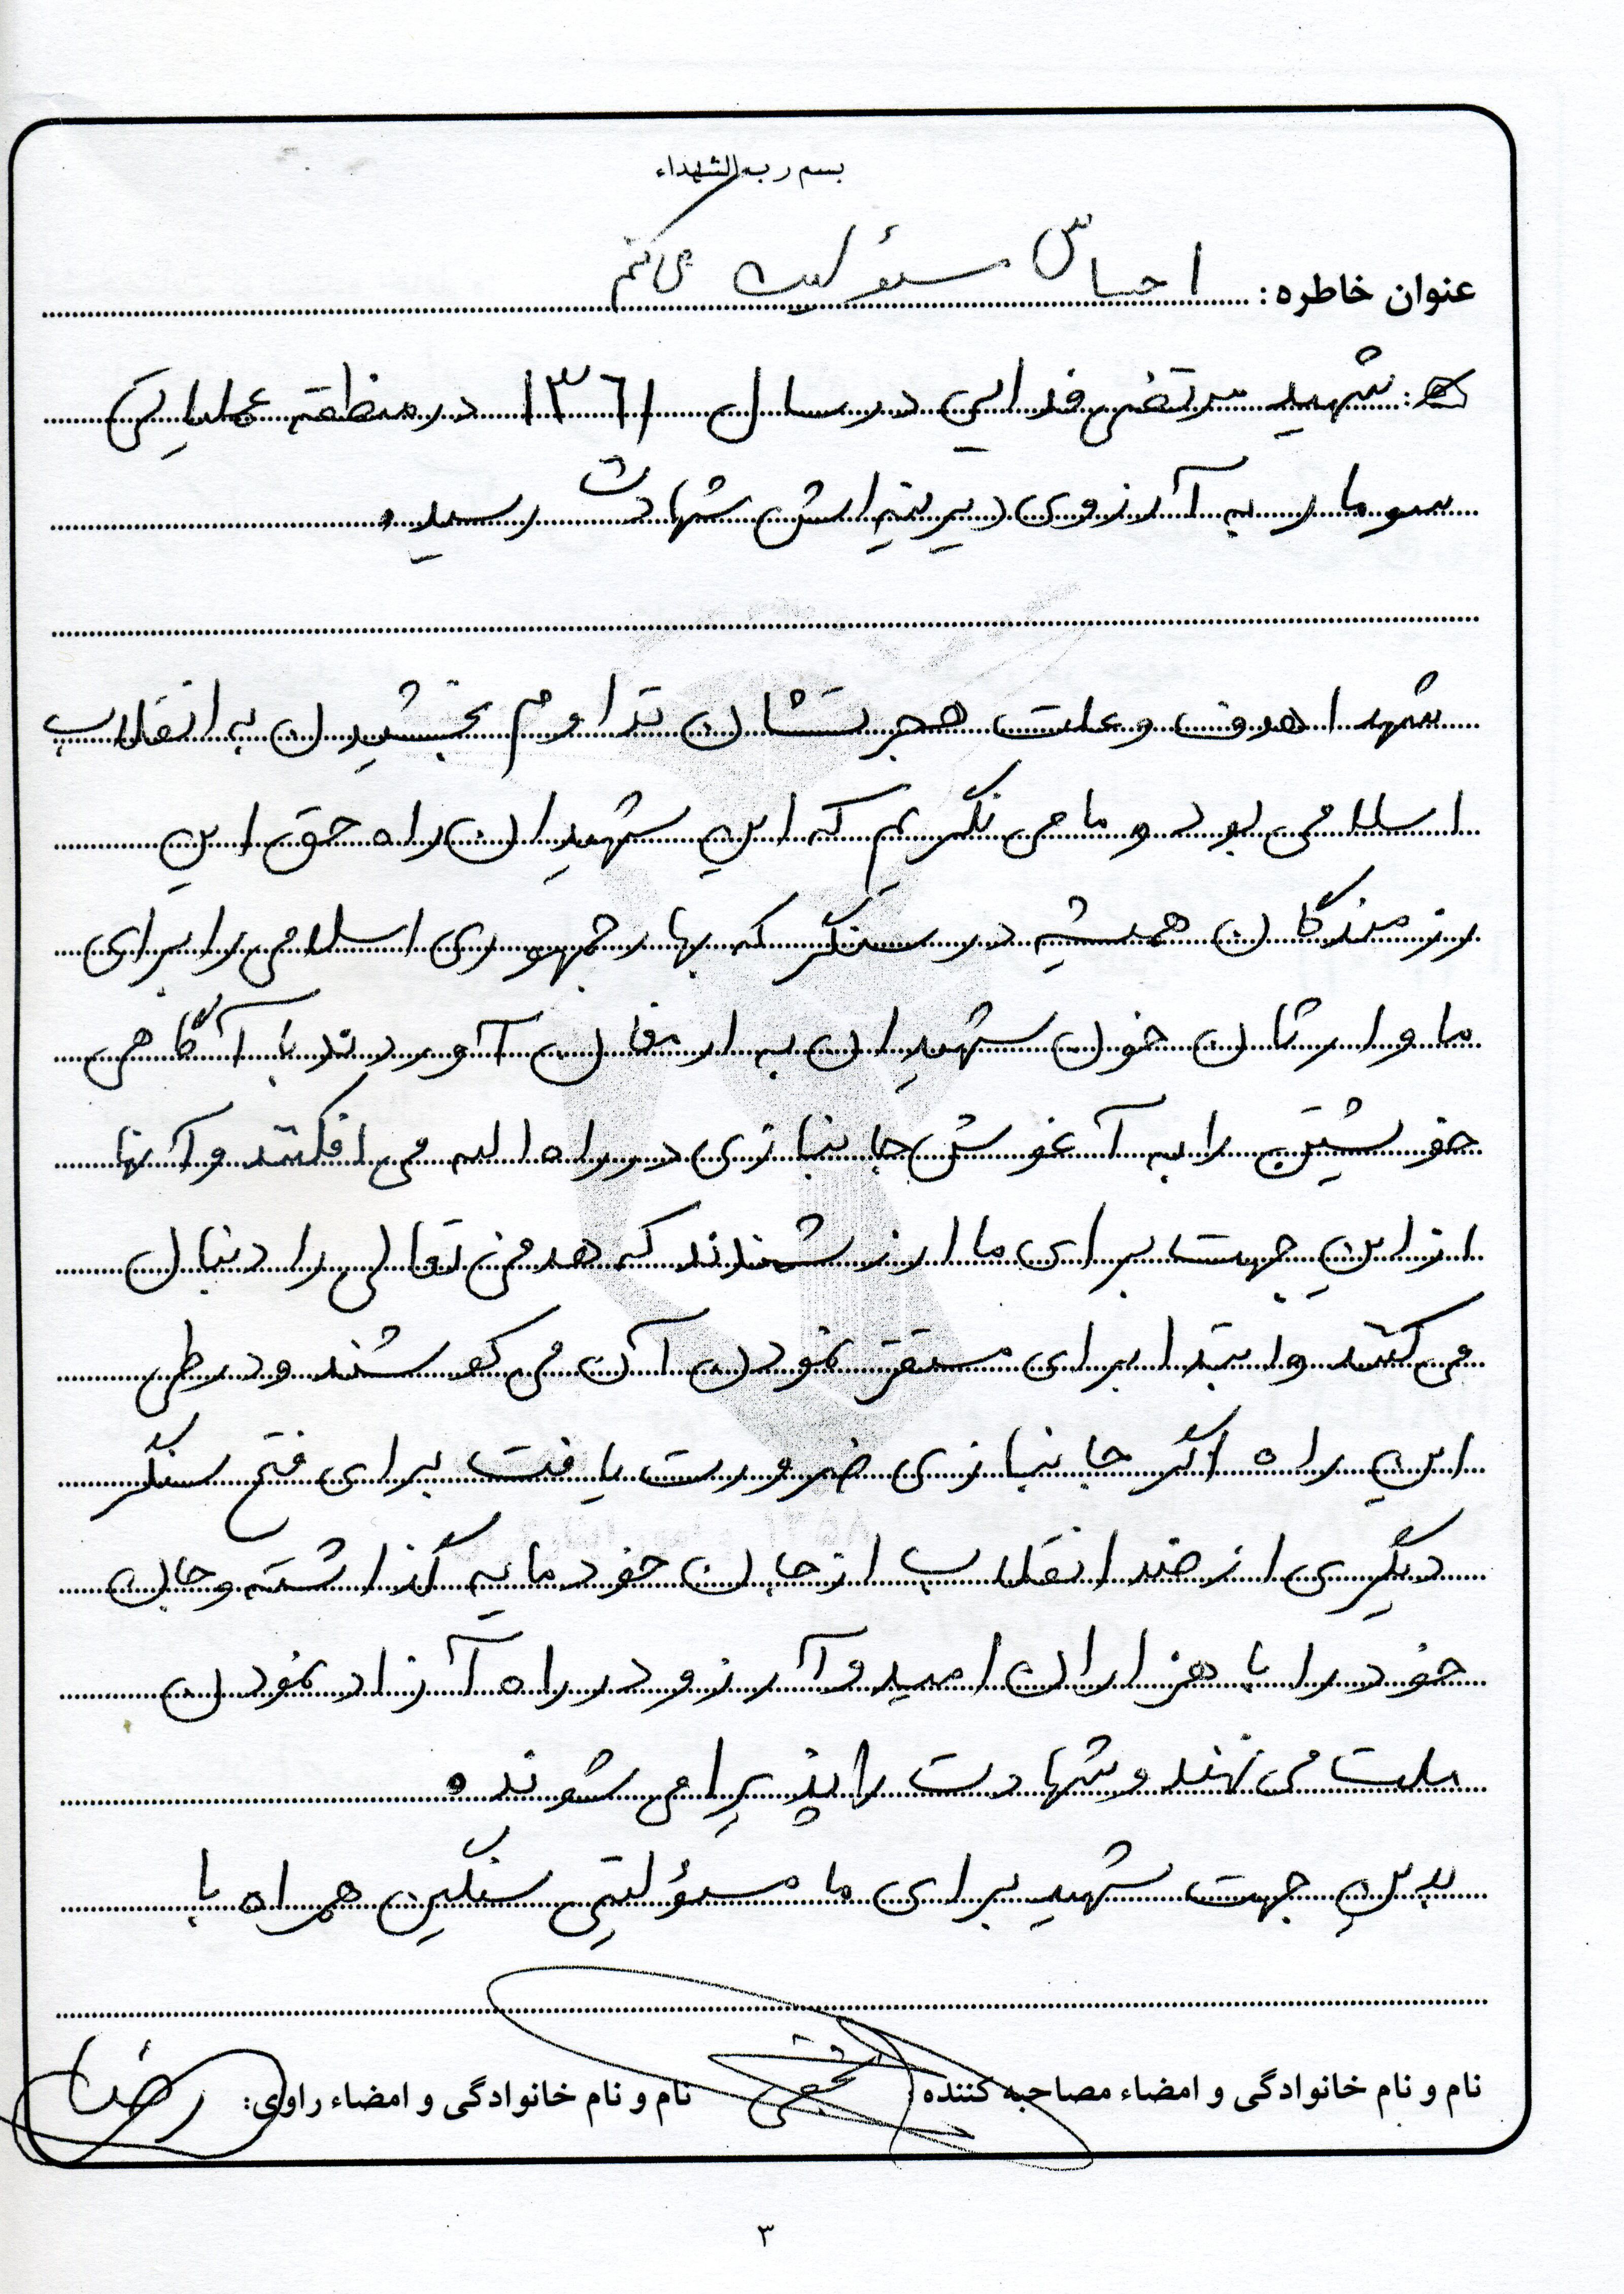 بسم رب الشهداء
عنوان خاطره: احساس مسئولیت می کنم
شهید مرتضی فدایی در سال ۱۳۶۱ در منطقه عملیاتی
سومار به آرزوی دیرینه اش شهادت رسید.
شهدا هدف و علت هجرتشان تداوم بخشیدن به انقلاب
اسلامی بود و ما می نگریم که این شهیدان راه حق این
رزمندگان همیشه در سنگر که بهار جمهوری اسلامی را برای
ما وارثان خون شهیدان به ارمغان آوردند با آگاهی
خویشتن را به آغوش جانبازی در راه اله می افکنند و آنها
از این جهت برای ما ارزشمندند که هدفی تعالی را دنبال
می کنند و ابتدا برای مستقر نمودن آن می کوشند و در طی
این راه اگر جانبازی ضرورت یافت برای فتح سنگر
دیگری از ضد انقلاب از جان خود مایه گذاشته و جان
خود را با هزاران امید و آرزو در راه آزاد نمودن
ملت می نهند و شهادت را پذیرا می شوند.
بدین جهت شهید برای ما مسئولیتی سنگین همراه با
نام و نام خانوادگی و امضاء مصاحبه کننده: نام و نام خانوادگی و امضاء راوی: رضا
۳